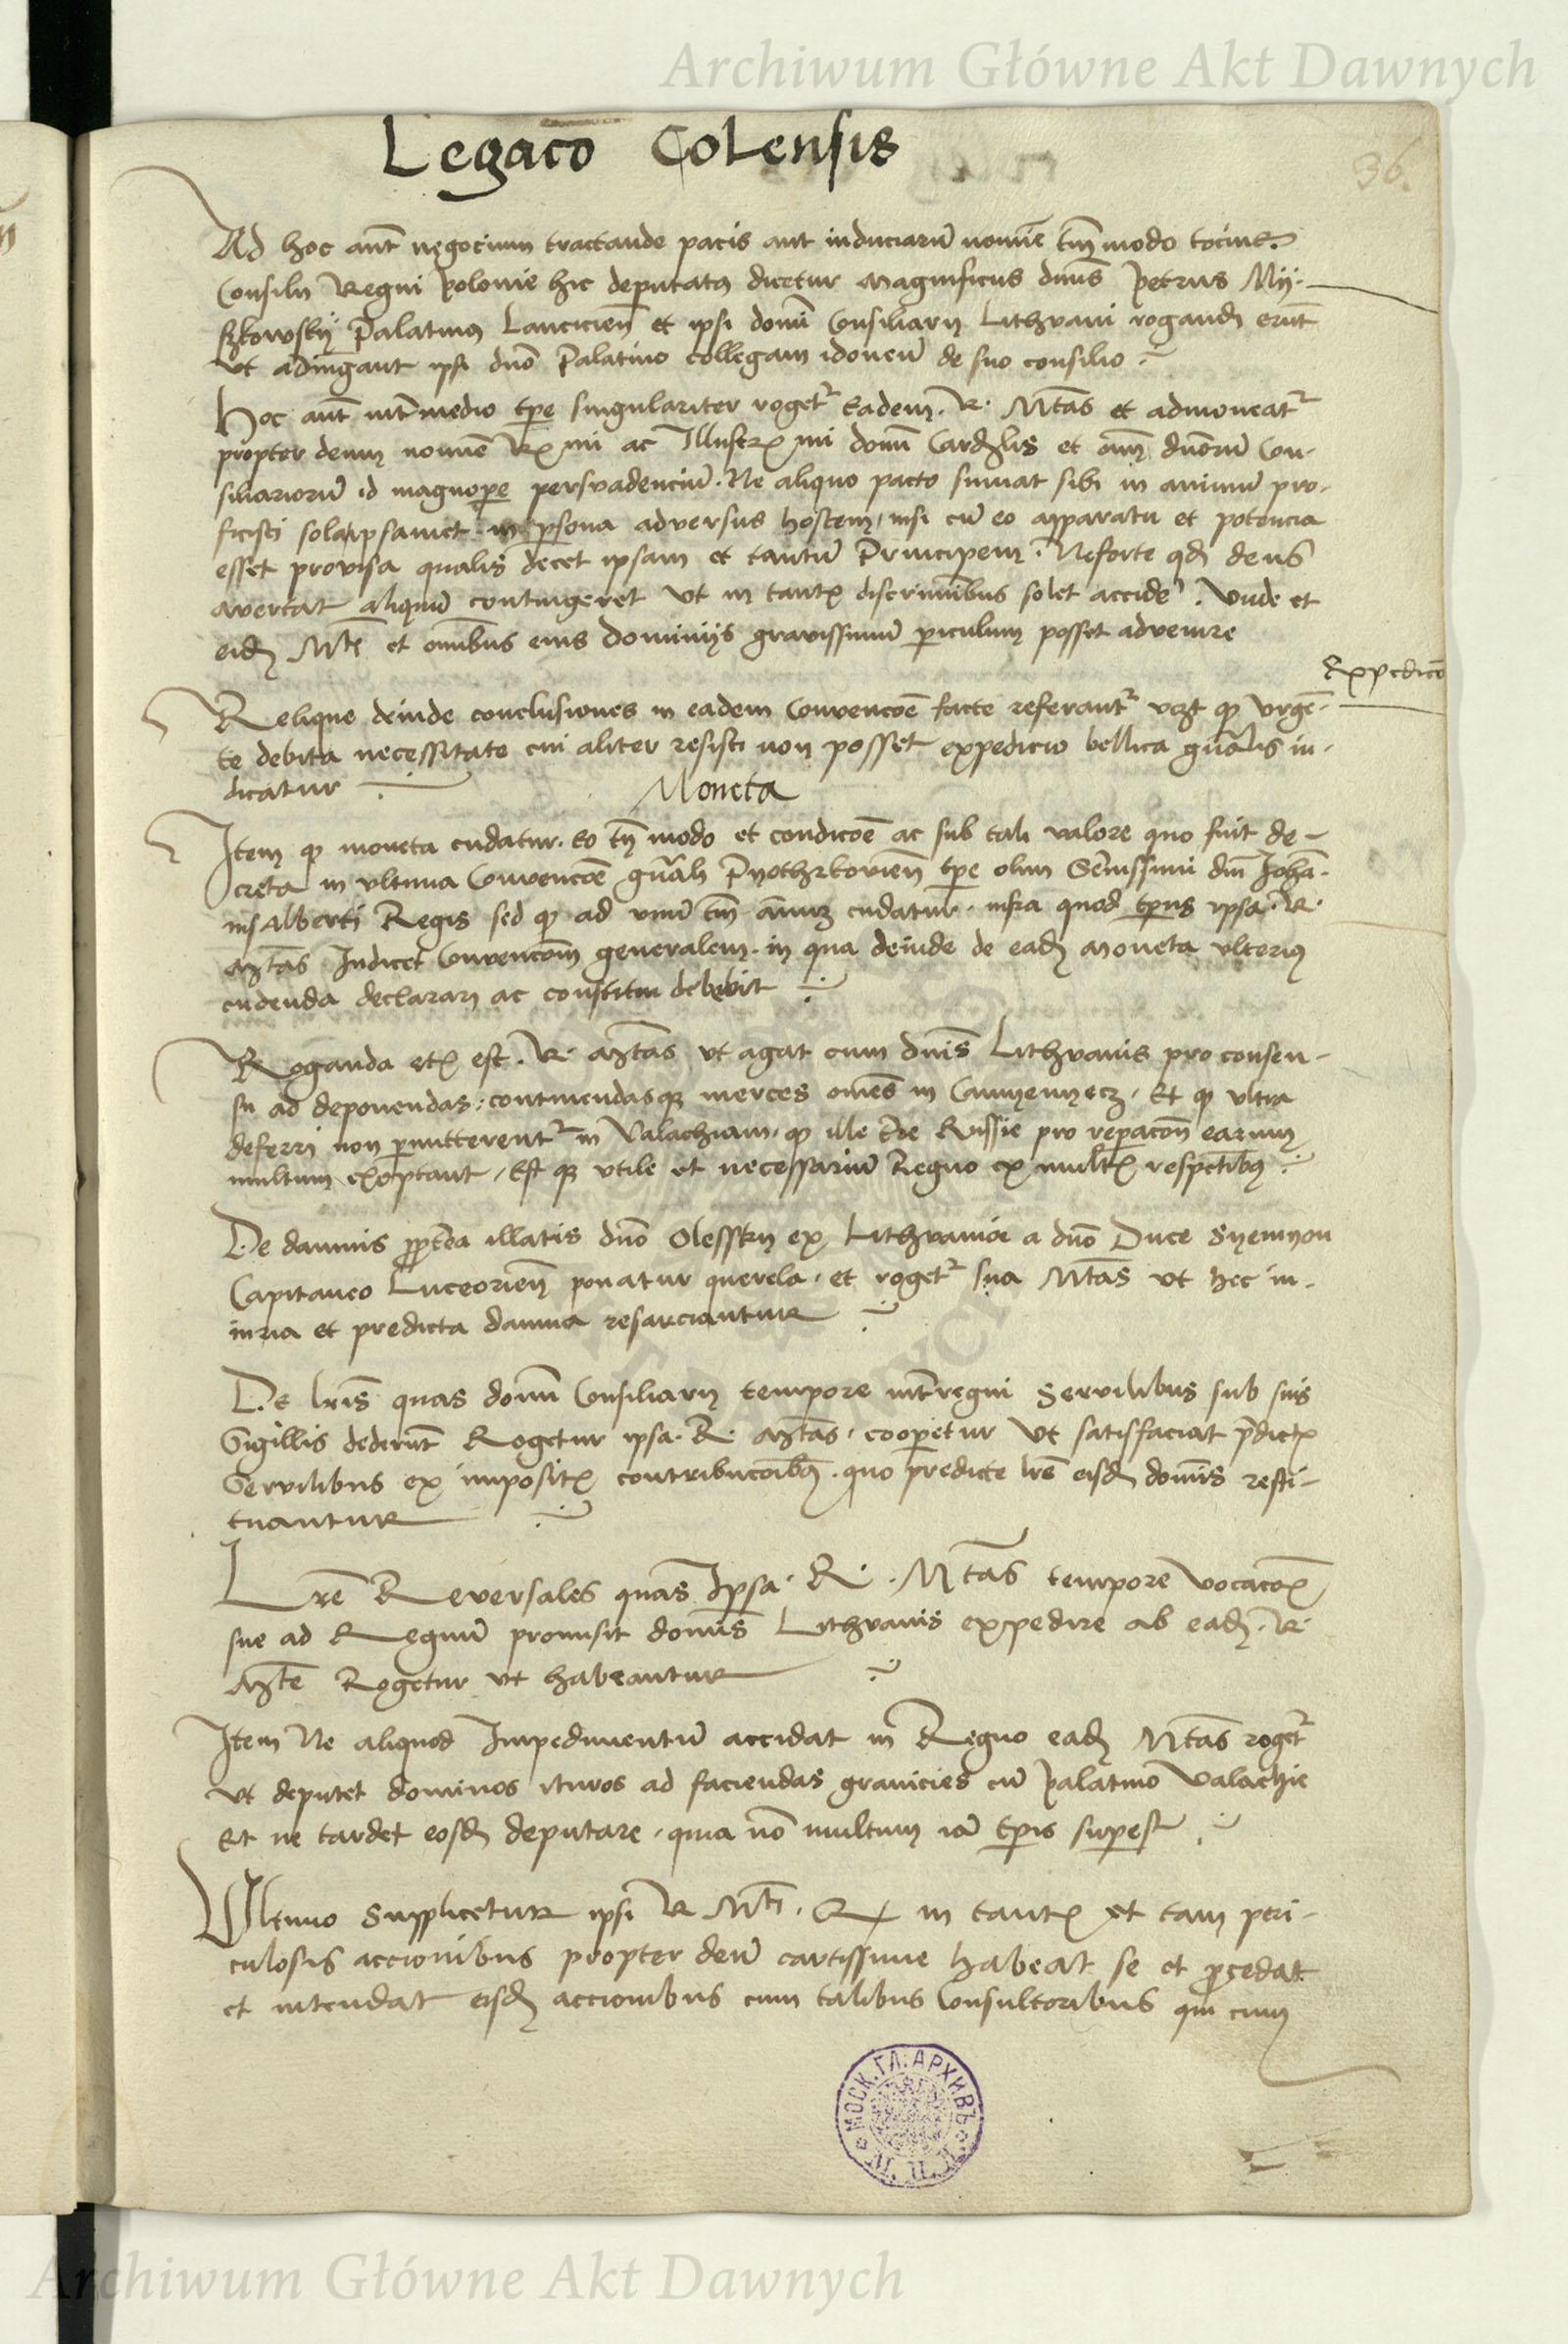 Archiwum Główne Akt Dawnych
Legaco Colensis
36.
Ad hoc aut negocium tractande pacis aut induciarū nomīe tm̄modo tocius
Consilii Regni Polonie hic deputatus dicetur magnificus dn̄us Petrus Mij-
schkowskij Palatinus Lancicien̄ et ipsi domī Consiliarij Lithvani rogandi erūt
ut adiungant ipsi dn̄o Palatino collegam idoneū de suo consilio
Hoc aut int̄medio tp̄e singulariter roget᷑ eadem R. Mtas et admoneat᷑
propter deum nomīe Rx̄mi ac Illustrx̄mi domī Cardlis et om̄ dn̄orū Con-
siliariorū id magnope persvadenciū. Ne aliquo pacto sumat sibi in animū pro-
ficisci sola ipsamet in psona adversus hostem, nisi cū eo apparatu et potencia
esset provisa qualis decet ipsam et tantū Principem. Ne forte qd deus
avertat aliquid contingeret ut in tantꝭ discriminibus solet accide. Unde et
eid Mti et om̄ibus eius dominijs gravissimū piculum posset advenire
Expedicō
Relique deinde conclusiones in eadem Convencōe facte referant᷑ vcz ut qp urgē-
te debita necessitate cui aliter resisti non posset expedicio bellica gn̄alis in-
dicatur
Moneta
Item qp moneta cudatur. eo tn̄ modo et condicōe ac sub tali valore quo fuit de-
creta in ultima Convencōe gn̄ali Pyothrkovien̄ tpe olim Serēissimi dn̄i Johā-
nis Alberti Regis sed qp ad unū tm̄ annū cudatur. infra quod tpus ipsa R.
Mtas Indicet Convencōm generalem. in qua deinde de ead moneta ulterius
cudenda declarari ac constitui debebit
Roganda etꝭ est. R. Mtas ut agat cum dn̄is Lithvanis pro consen-
su ad deponendas, continendasqꝫ merces om̄es in Camyenyecz. Et qp ultra
deferri non pmitterent᷑ in Valachiam. qp ille tre Russie pro repacōn earum
multum exoptant, Est qꝫ utile et necessariū Regno ex multꝭ respectibus
De damnis pptea illatis dn̄o Olesski ex Lithvania a dn̄o Duce Syemyon
Capitaneo Luceorien̄ ponatur querela. et roget᷑ sua Mtas ut hec in-
iuria et predicta damna resarciantur
De lr̄is quas domī Consiliarij tempore int̄regni Servilibus sub suis
Sigillis dederūt Rogetur ipsa R. Mtas, coopetur ut satisfaciat pdictꝭ
Servilibus ex impositꝭ contribucōibus. quo predicte lr̄e eisd domīs resti-
tuantur
Lr̄e Reversales quas Ipsa R. Mtas tempore vocacōꝭ
sue ad Regnū promisit domīs Lithvanis expedire ab ead R.
Mte Rogetur ut habeantur
Item Ne aliquod Impedimentū accidat in Regno ead Mtas roget᷑
ut deputet dominos ituros ad faciendas granicies cū Palatino Valachie
Et ne tardet eosd deputare, quia nō multum iā tpis supest
Ultimo Supplicetur ipsi R Mti. Qꝭ in tantꝭ et tam peri-
culosis accionibus propter deū cautissime habeat se et pcedat
et intendat eisd accionibus cum talibus Consultoribus qui cum
МОСК. ГЛ. АРХИВЪ
Archiwum Główne Akt Dawnych